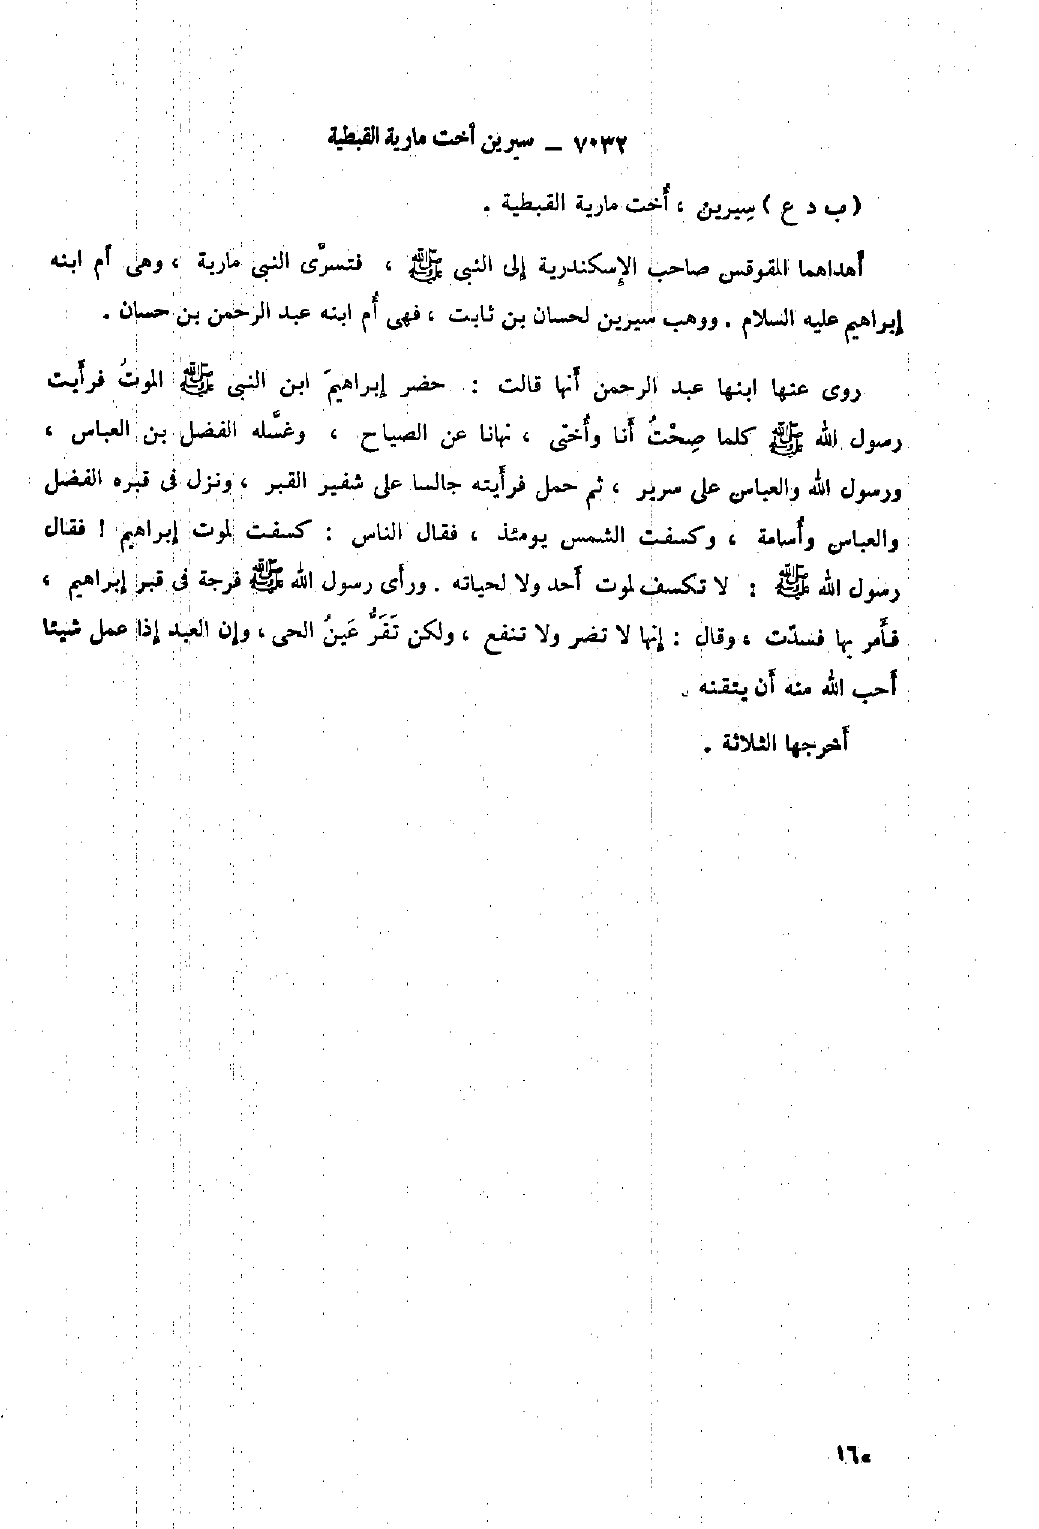 ٧٠٣٢ – سيرين أخت مارية القبطية
( ب د ع ) سِيرين ، أُخت مارية القبطية .
أهداهما المقوقس صاحب الإِسكندرية إلى النبى ﷺ ، فتسرَّى النبى مارية ، وهى أم ابنه
إبراهيم عليه السلام . ووهب سيرين لحسان بن ثابت ، فهى أُم ابنه عبد الرحمن بن حسان .
روى عنها ابنها عبد الرحمن أنها قالت : حضر إبراهيمَ ابن النبى ﷺ الموتُ فرأيت
رسول الله ﷺ كلما صِحْتُ أنا وأُختى ، نهانا عن الصياح ، وغسَّله الفضل بن العباس ،
ورسول الله والعباس على سرير ، ثم حمل فرأيته جالسا على شفير القبر ، ونزل فى قبره الفضل
والعباس وأُسامة ، وكسفت الشمس يومئذ ، فقال الناس : كسفت لموت إبراهيم ! فقال
رسول الله ﷺ : لا تكسف لموت أحد ولا لحياته . ورأى رسول الله ﷺ فرجة فى قبر إبراهيم ،
فأمر بها فسدّت ، وقال : إنها لا تضر ولا تنفع ، ولكن تَقَرُّ عَينُ الحى ، وإن العبد إذا عمل شيئا
أحب الله منه أن يتقنه .
أخرجها الثلاثة .
١٦٠